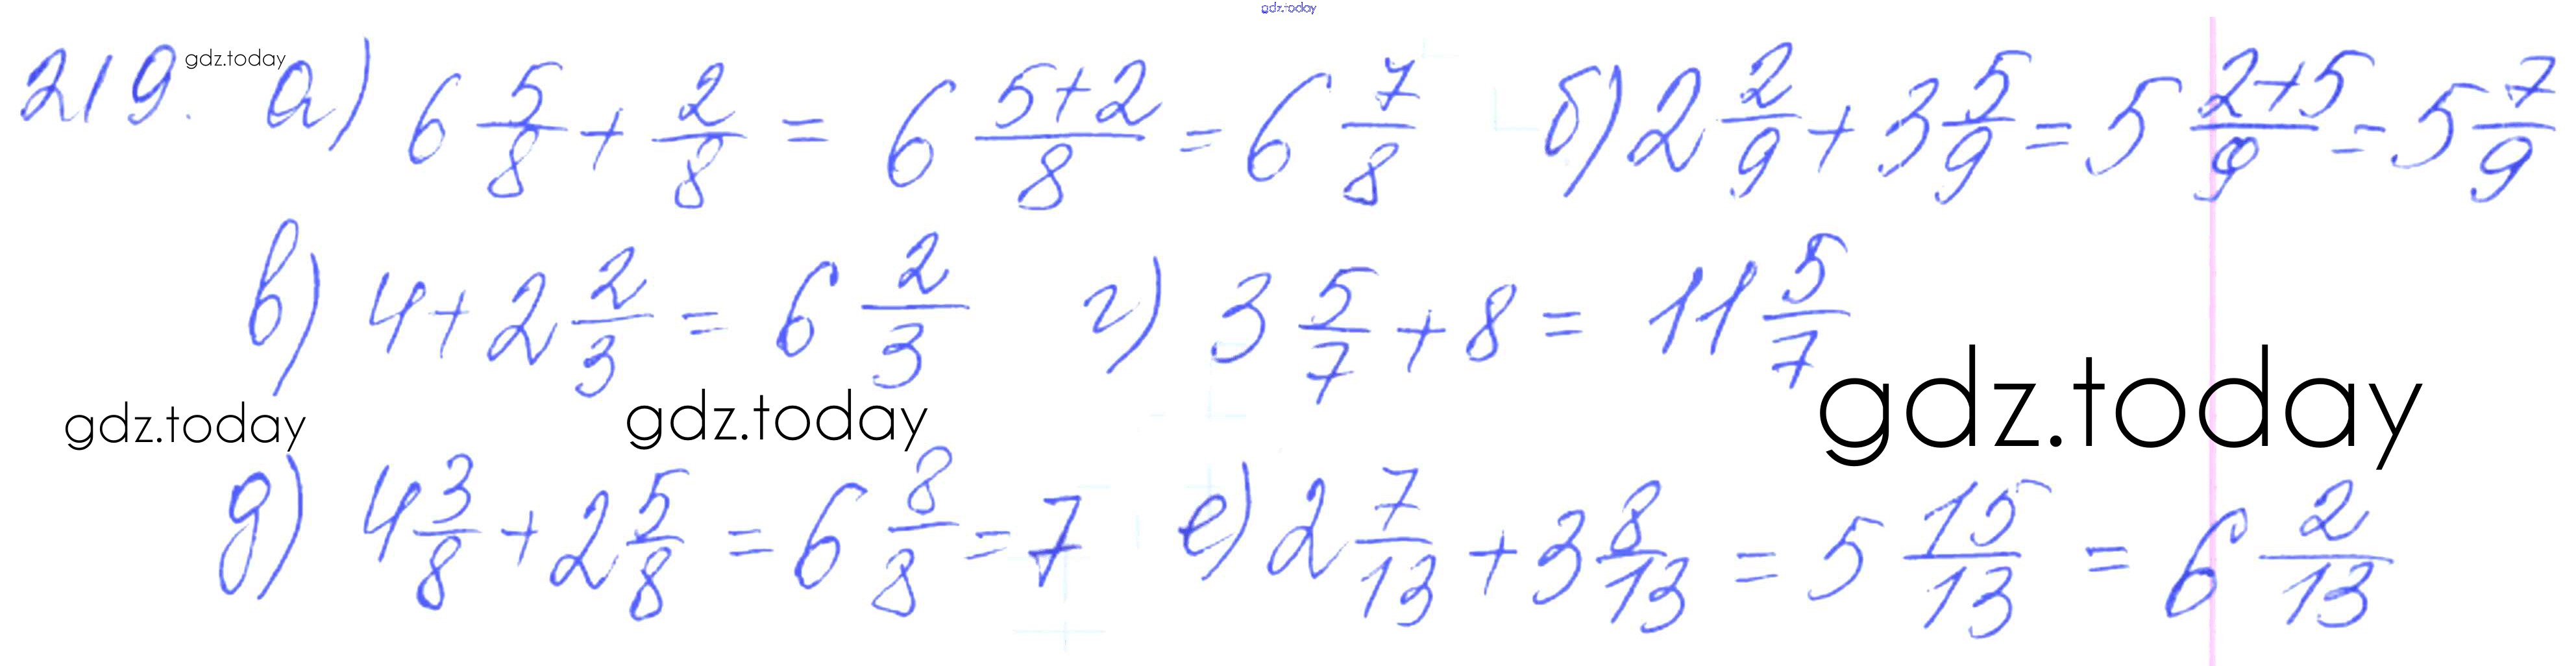 gdz.today
219. gdz.today а) 6 5/8 + 2/8 = 6 (5+2)/8 = 6 7/8 б) 2 2/9 + 3 5/9 = 5 (2+5)/9 = 5 7/9
в) 4 + 2 2/3 = 6 2/3 г) 3 5/7 + 8 = 11 5/7
gdz.today gdz.today gdz.today
д) 4 3/8 + 2 5/8 = 6 8/8 = 7 е) 2 7/13 + 3 8/13 = 5 15/13 = 6 2/13